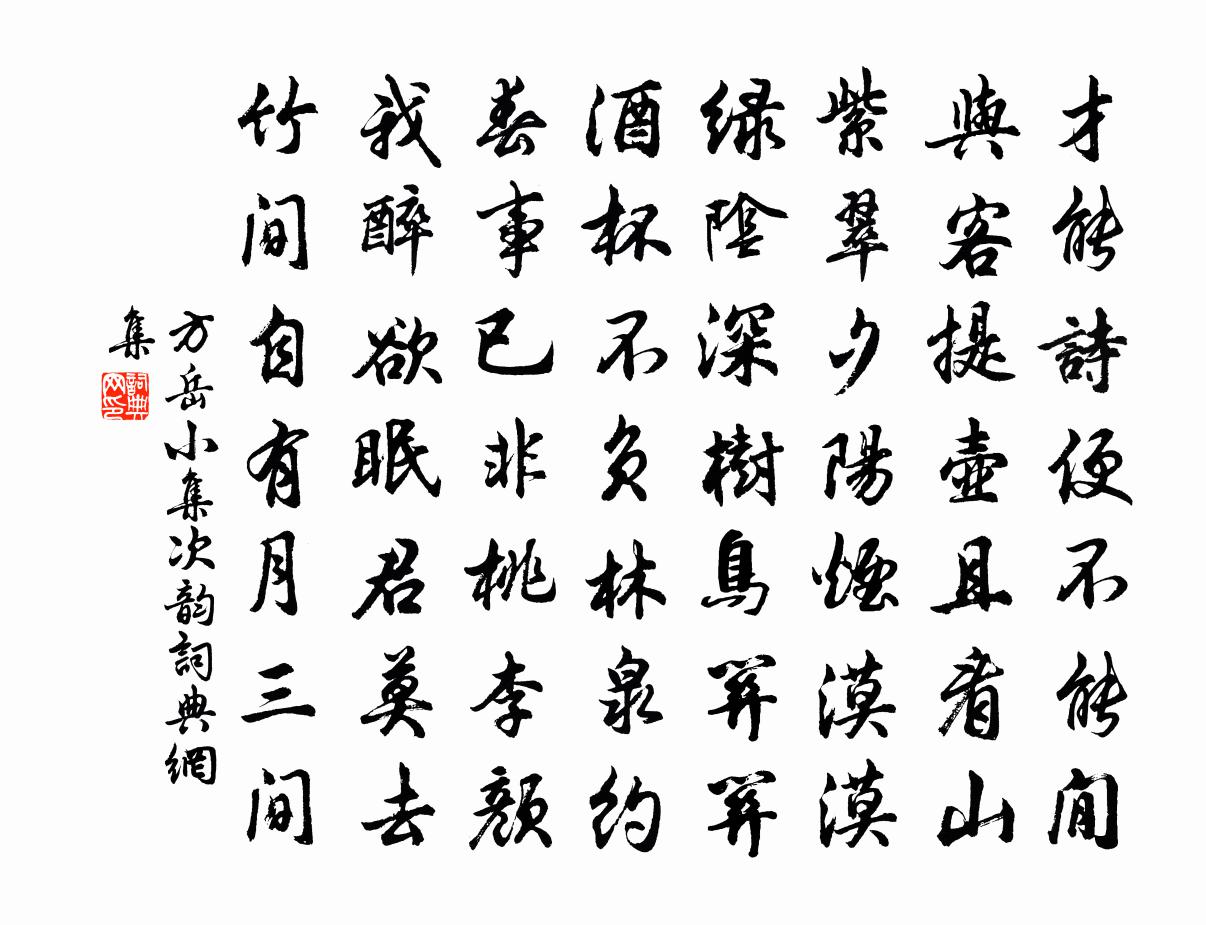 才能詩便不能閒
與客提壺且看山
紫翠夕陽煙漠漠
绿陰深樹鳥關關
酒杯不負林泉約
春事已非桃李顏
我醉欲眠君莫去
竹間自有月三間
方岳小集次韵詞典網
集
詞典
网印